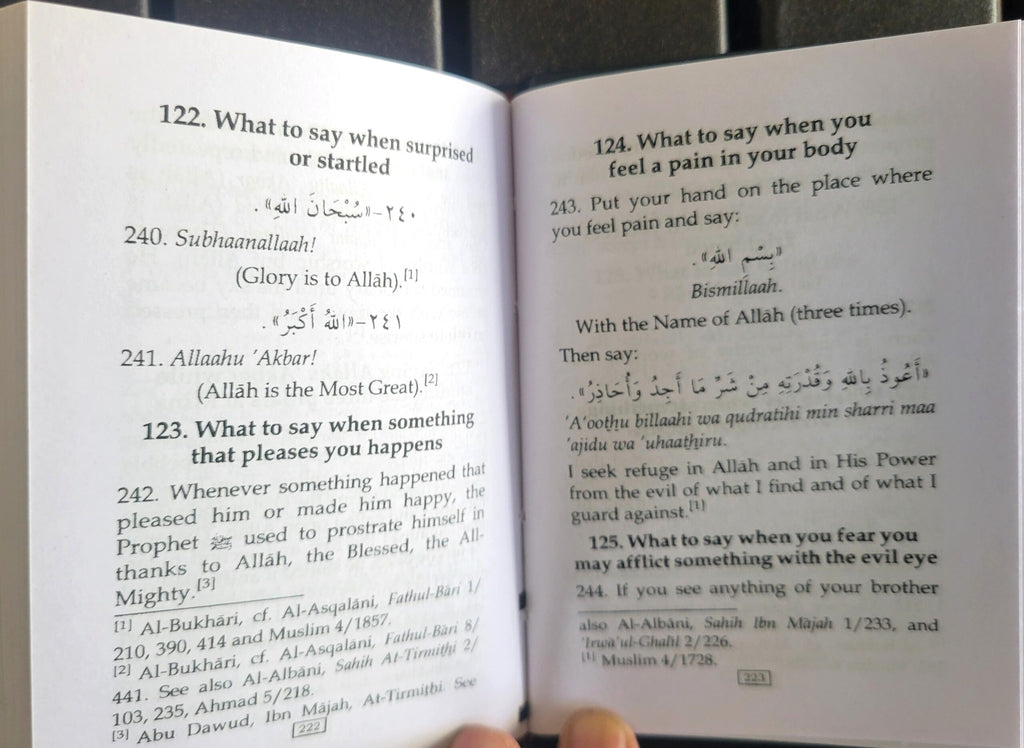 122. What to say when surprised
or startled
٢٤٠-«سُبْحَانَ اللهِ».
240. Subhaanallaah!
(Glory is to Allāh).[1]
٢٤١-«اللهُ أَكْبَرُ».
241. Allaahu 'Akbar!
(Allāh is the Most Great).[2]
123. What to say when something
that pleases you happens
242. Whenever something happened that
pleased him or made him happy, the
Prophet ﷺ used to prostrate himself in
thanks to Allāh, the Blessed, the All-
Mighty.[3]
[1] Al-Bukhāri, cf. Al-Asqalāni, Fathul-Bāri 1/
210, 390, 414 and Muslim 4/1857.
[2] Al-Bukhāri, cf. Al-Asqalāni, Fathul-Bāri 8/
441. See also Al-Albāni, Sahih At-Tirmiṭhi 2/
103, 235, Ahmad 5/218.
[3] Abu Dawud, Ibn Mājah, At-Tirmiṭhi. See
222
124. What to say when you
feel a pain in your body
243. Put your hand on the place where
you feel pain and say:
«بِسْمِ اللهِ».
Bismillaah.
With the Name of Allāh (three times).
Then say:
«أَعُوذُ بِاللهِ وَقُدْرَتِهِ مِنْ شَرِّ مَا أَجِدُ وَأُحَاذِرُ».
'A'ooṭhu billaahi wa qudratihi min sharri maa
'ajidu wa 'uhaaṭhiru.
I seek refuge in Allāh and in His Power
from the evil of what I find and of what I
guard against.[1]
125. What to say when you fear you
may afflict something with the evil eye
244. If you see anything of your brother
also Al-Albāni, Sahih Ibn Mājah 1/233, and
'Irwā'ul-Ghalil 2/226.
[1] Muslim 4/1728.
223